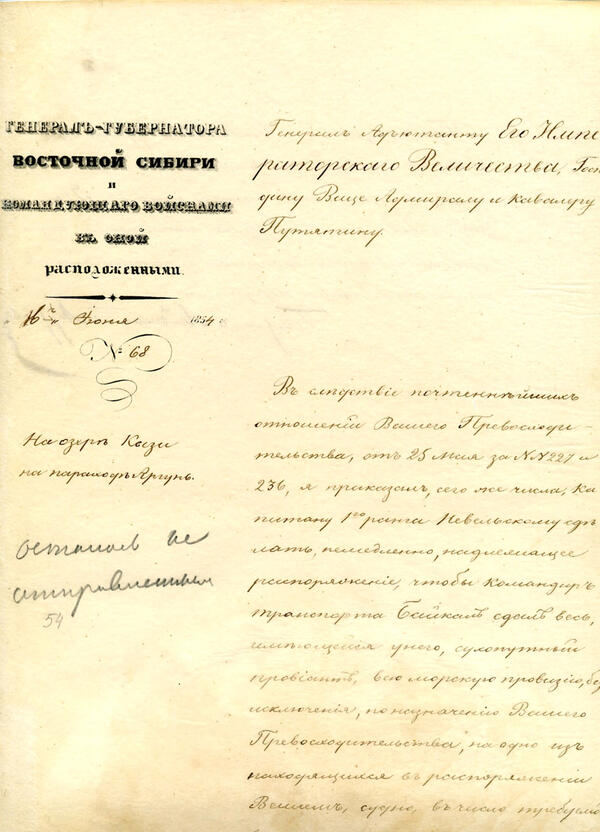 ГЕНЕРАЛЪ-ГУБЕРНАТОРА
ВОСТОЧНОЙ СИБИРИ
И
КОМАНДУЮЩАГО ВОЙСКАМИ
ВЪ ОНОЙ
РАСПОЛОЖЕННЫМИ.
16 го Іюня 1854 г
№ 68
На озерѣ Кизи
на пароходѣ Аргунь.
остался не
отправленным
54
Генералъ Адъютанту Его Импе
раторскаго Величества, Гос
дину Вице Адмиралу и Кавалеру
Путятину.
Въ слѣдствіе почтеннѣйшихъ
отношеній Вашего Превосходи-
тельства, отъ 25 Мая за №№ 227 и
236, я приказалъ, сего же числа, Ка
питану 1го ранга Невельскому сдѣ
лать, немедленно, надлежащее
распоряженіе, чтобы Командиръ
транспорта Байкалъ сдалъ весь,
имѣющейся у него, сухопутный
провіантъ, всю морскую провизію, бе
исключенія, по назначенію Вашего
Превосходительства, на одно изъ
находящихся въ распоряженіи
Вашемъ, судно, въ число требуемо